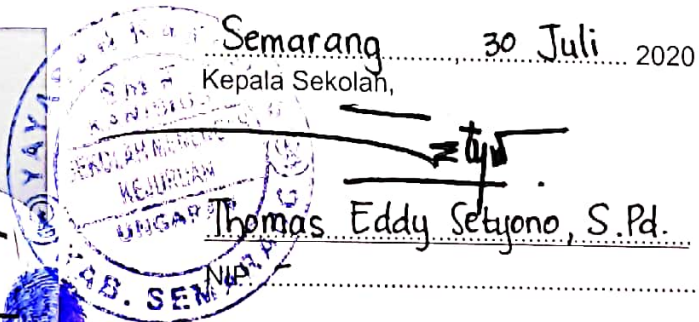 Semarang, 30 Juli 2020
Kepala Sekolah,
Thomas Eddy Setyono, S.Pd.
NIP. -
YAYA
SEKOLAH MENENG
KEJURUAN
UNGARAN
KAB. SEMARANG